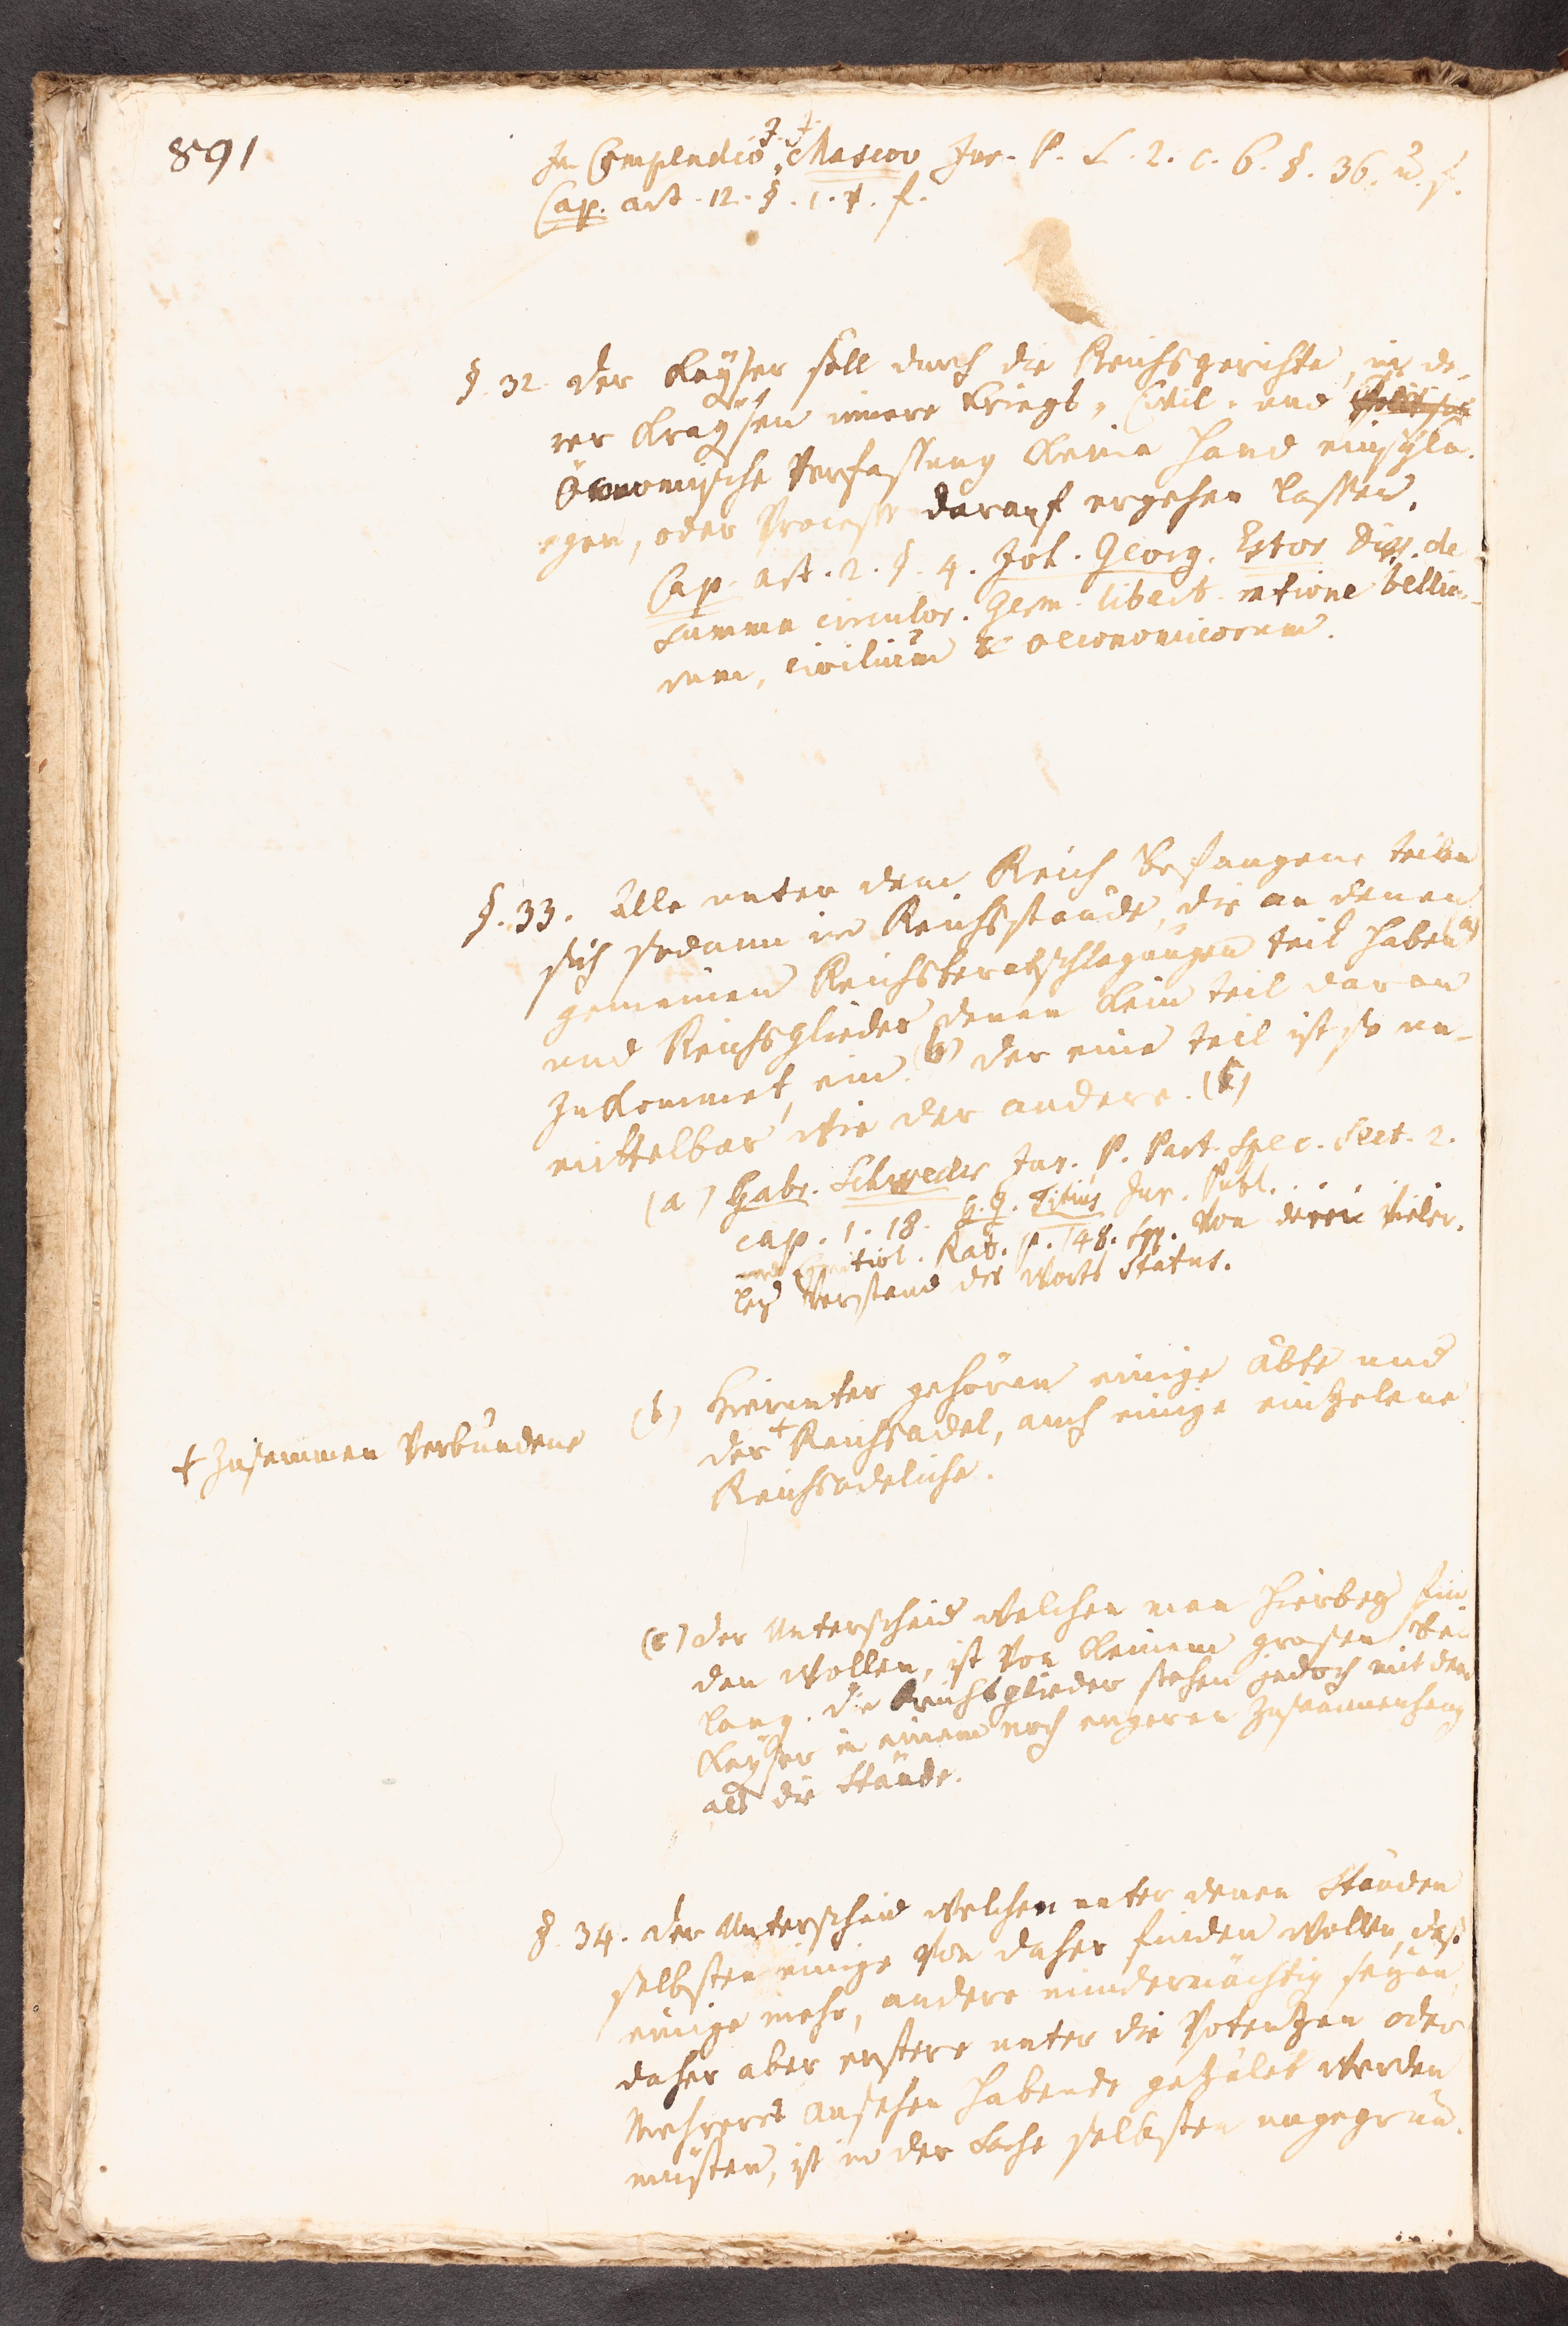 891
In Compendio J. J. Mascov Jur. P. L. 2. c. 6. §. 36. u. f.
Cap. art. 12. §. 1. u. f.
§. 32. der Kayser soll durch die Reichsgerichte, in de-
rer Kraysen innere Kriegs-, Civil- und
Öconomische Verfassung keine Hand einschla-
gen, oder Processe darauf ergehen lassen.
Cap. art. 2. §. 4. Joh. Georg. Estor Diss. de
summa circulor. Germ. libert. ratione bellico-
rum, civilium & oeconomicorum.
§. 33. Alle unter dem Reich befangene teilen
sich sodann in Reichsstände, die an denen
gemeinen Reichsberatschlagungen teil haben (a)
und Reichsglieder denen kein teil daran
zukommet, ein. (b) der eine teil ist so un-
mittelbar, wie der andere. (c)
(a) Gabr. Schweder Jur. P. Part. Spec. Sect. 2.
cap. 1. 18. G. G. Titius Jur. Publ. . . . .
tivl. Rat. p. 148. sqq. Von deren vieler-
ley Verstand des Worts Status.
(b) Hierunter gehören einige Äbte und
der + Reichsadel, auch einige einzelene
Reichsadeliche.
+ zusammen Verbundene
(c) der Unterscheid welchen man hierbey fin
den wollen, ist von keinem grosen Be-
lang. die Reichsglieder stehen jedoch mit dem
Kayser in einem noch engeren Zusammenhang
als die Stände.
§. 34. der Unterscheid welchen unter denen Ständen
selbsten einige von daher finden wollen, daß
einige mehr, andere mindermächtig seyen,
daher aber erstere unter die Potentzen oder
Mehreres Ansehen habende gezälet werden
müsten, ist in der Sache selbsten ungegrün-